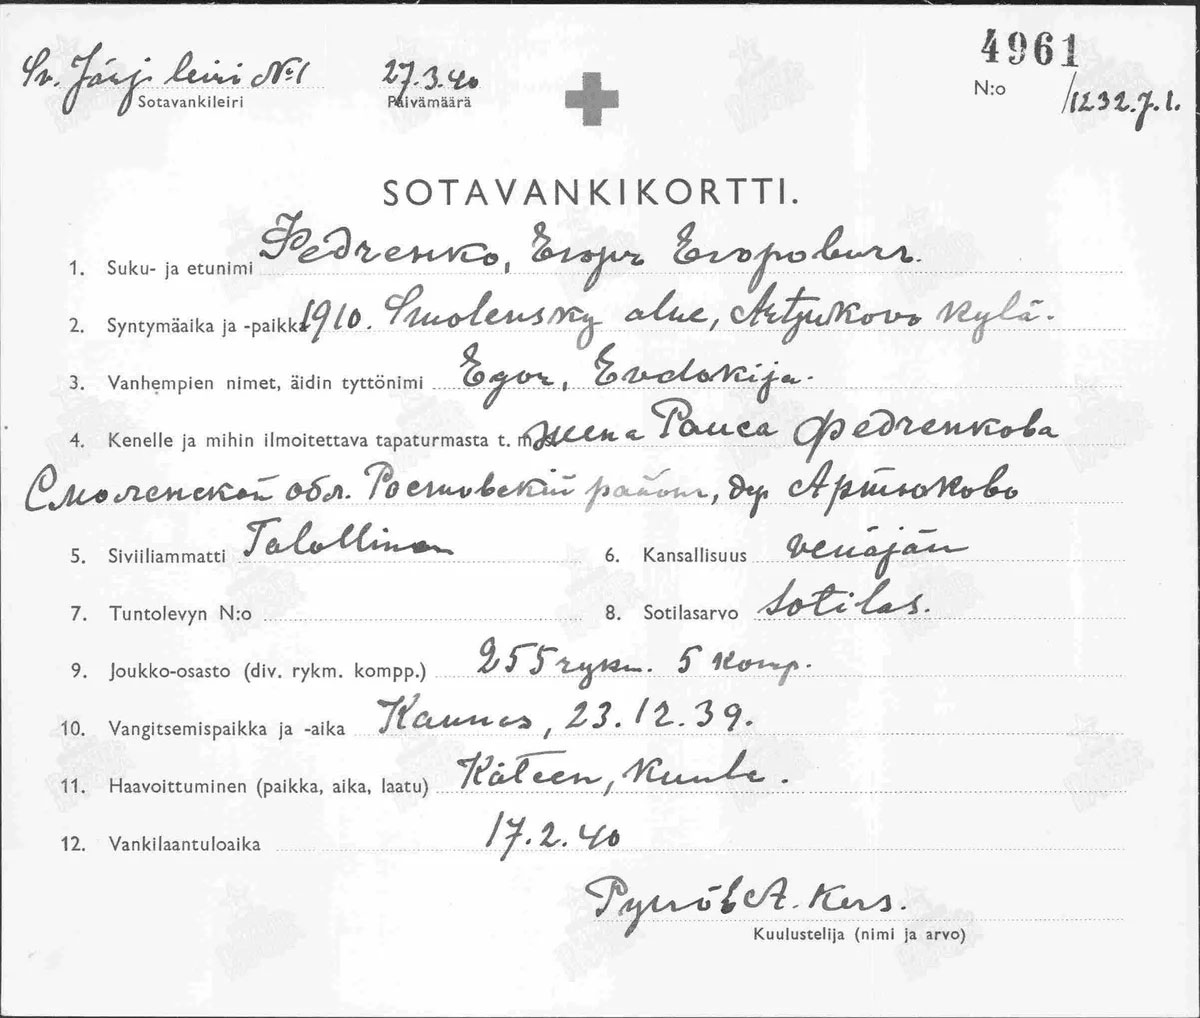 Sv. Järj. leiri №1 27.3.40 4961
Sotavankileiri Päivämäärä N:o /1232.7.1.
SOTAVANKIKORTTI.
1. Suku- ja etunimi Федченко, Егор Егорович.
2. Syntymäaika ja -paikka 1910. Smolensky alue, Artjukovo kylä.
3. Vanhempien nimet, äidin tyttönimi Egor, Evdokija.
4. Kenelle ja mihin ilmoitettava tapaturmasta t. m. s. жена Раиса Федченкова
Смоленской обл. район, др Артюково
5. Siviiliammatti Talollinen 6. Kansallisuus venäjän
7. Tuntolevyn N:o 8. Sotilasarvo Sotilas.
9. Joukko-osasto (div. rykm. kompp.) 255 rykm. 5 Komp.
10. Vangitsemispaikka ja -aika 23.12.39.
11. Haavoittuminen (paikka, aika, laatu) Käteen, Kuula.
12. Vankilaantuloaika 17.2.40
A. Kers.
Kuulustelija (nimi ja arvo)